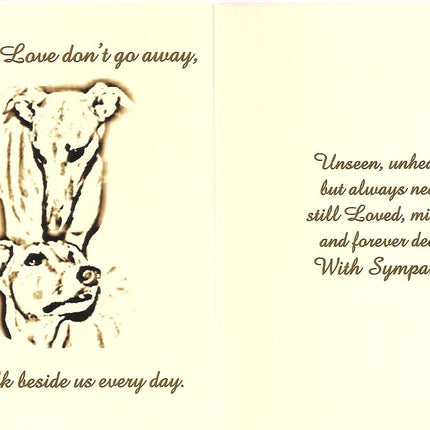 Love don't go away,
k beside us every day.
Unseen, unhea
but always nea
still Loved, mi
and forever dea
With Sympat